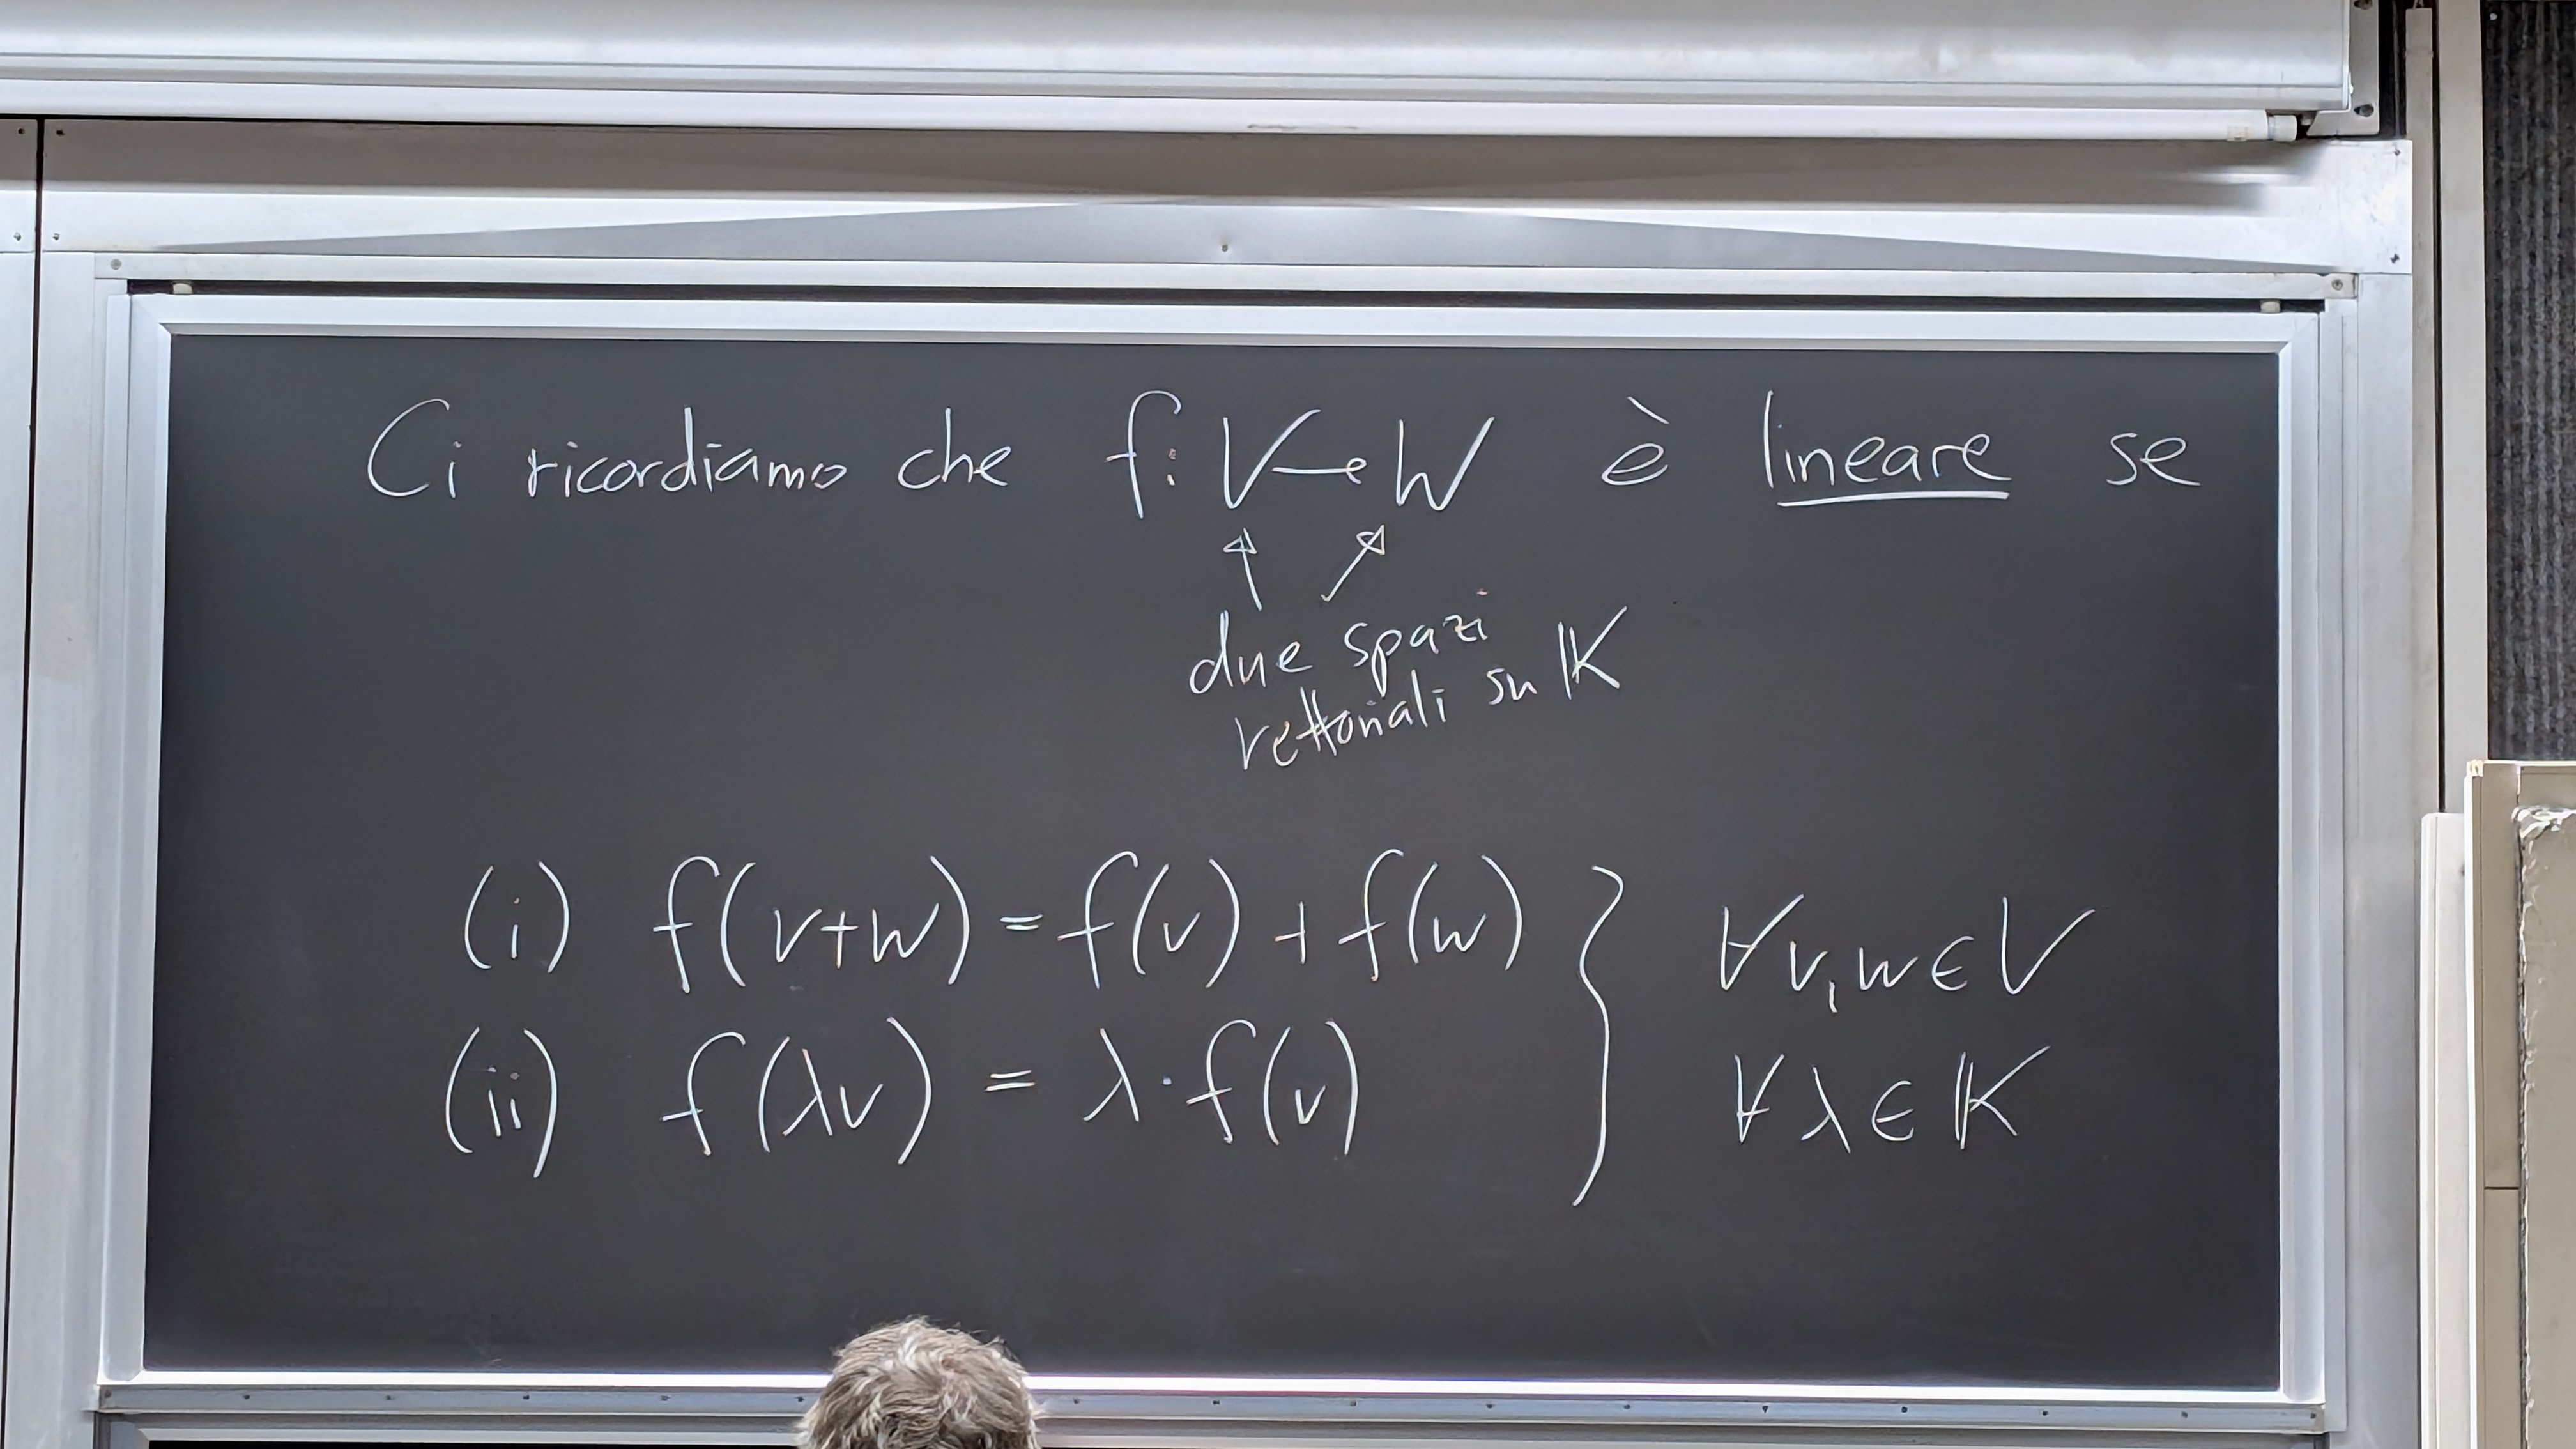 Ci ricordiamo che f: V → W è lineare se
due spazi
vettoriali su 𝕂
(i) f(v+w) = f(v) + f(w) } ∀v,w ∈ V
(ii) f(λv) = λ·f(v) ∀λ ∈ 𝕂